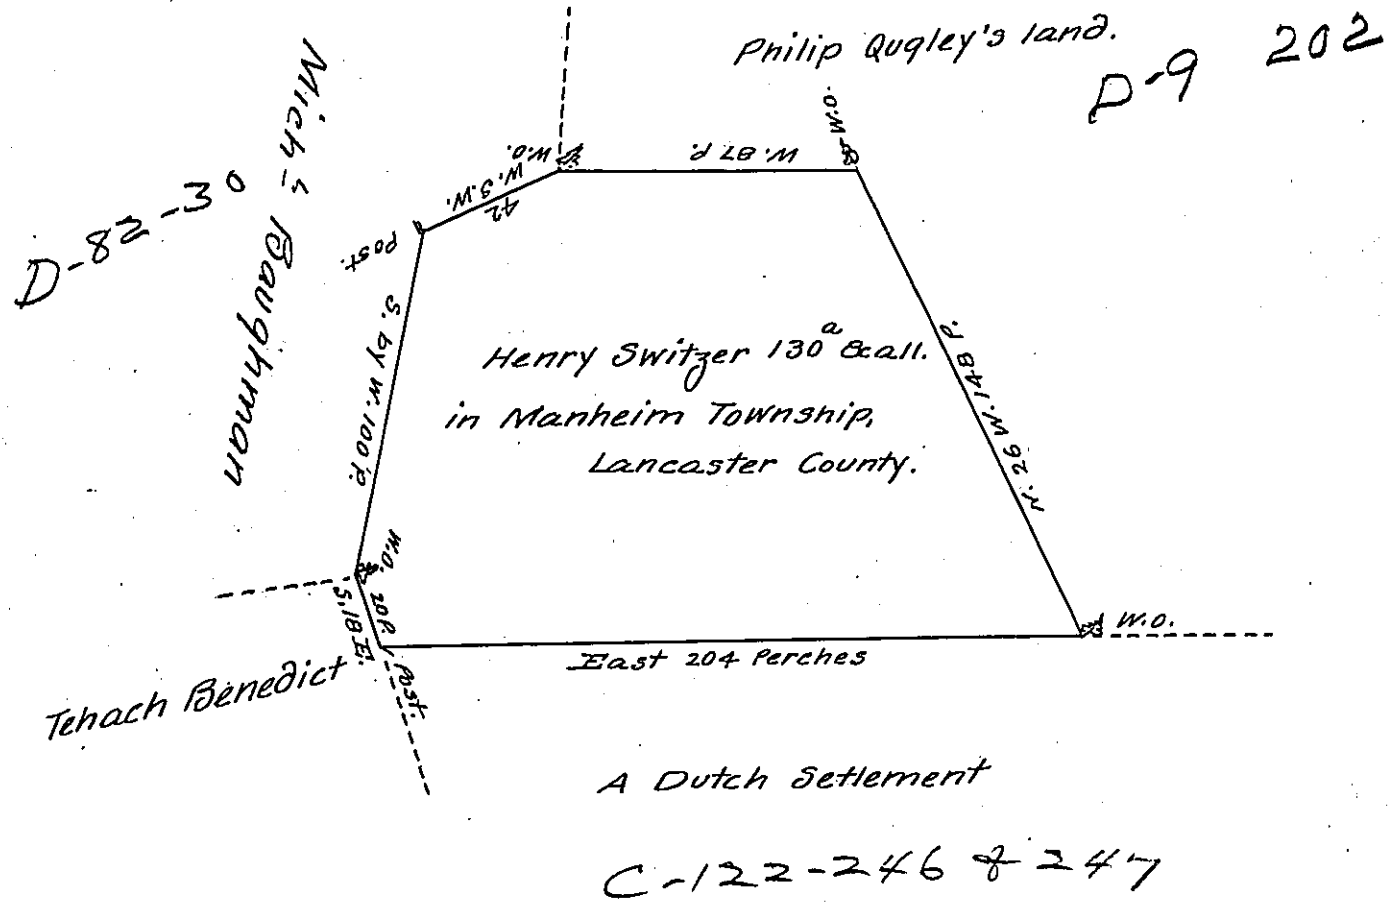 Philip Qugley's land.
D-9 202
D-82-30
Mich.ˡ Baughman
W.O.
W. 87 P.
W.O.
W.S.W.
42
Post.
S. by W. 100 P.
N. 26 W. 148 P.
Henry Switzer 130ᵃ &call.
in Manheim Township,
Lancaster County.
W.O.
20 P.
S. 18 E.
Post.
East 204 Perches
W.O.
Tehach Benedict
A Dutch Setlement
C-122-246 & 247